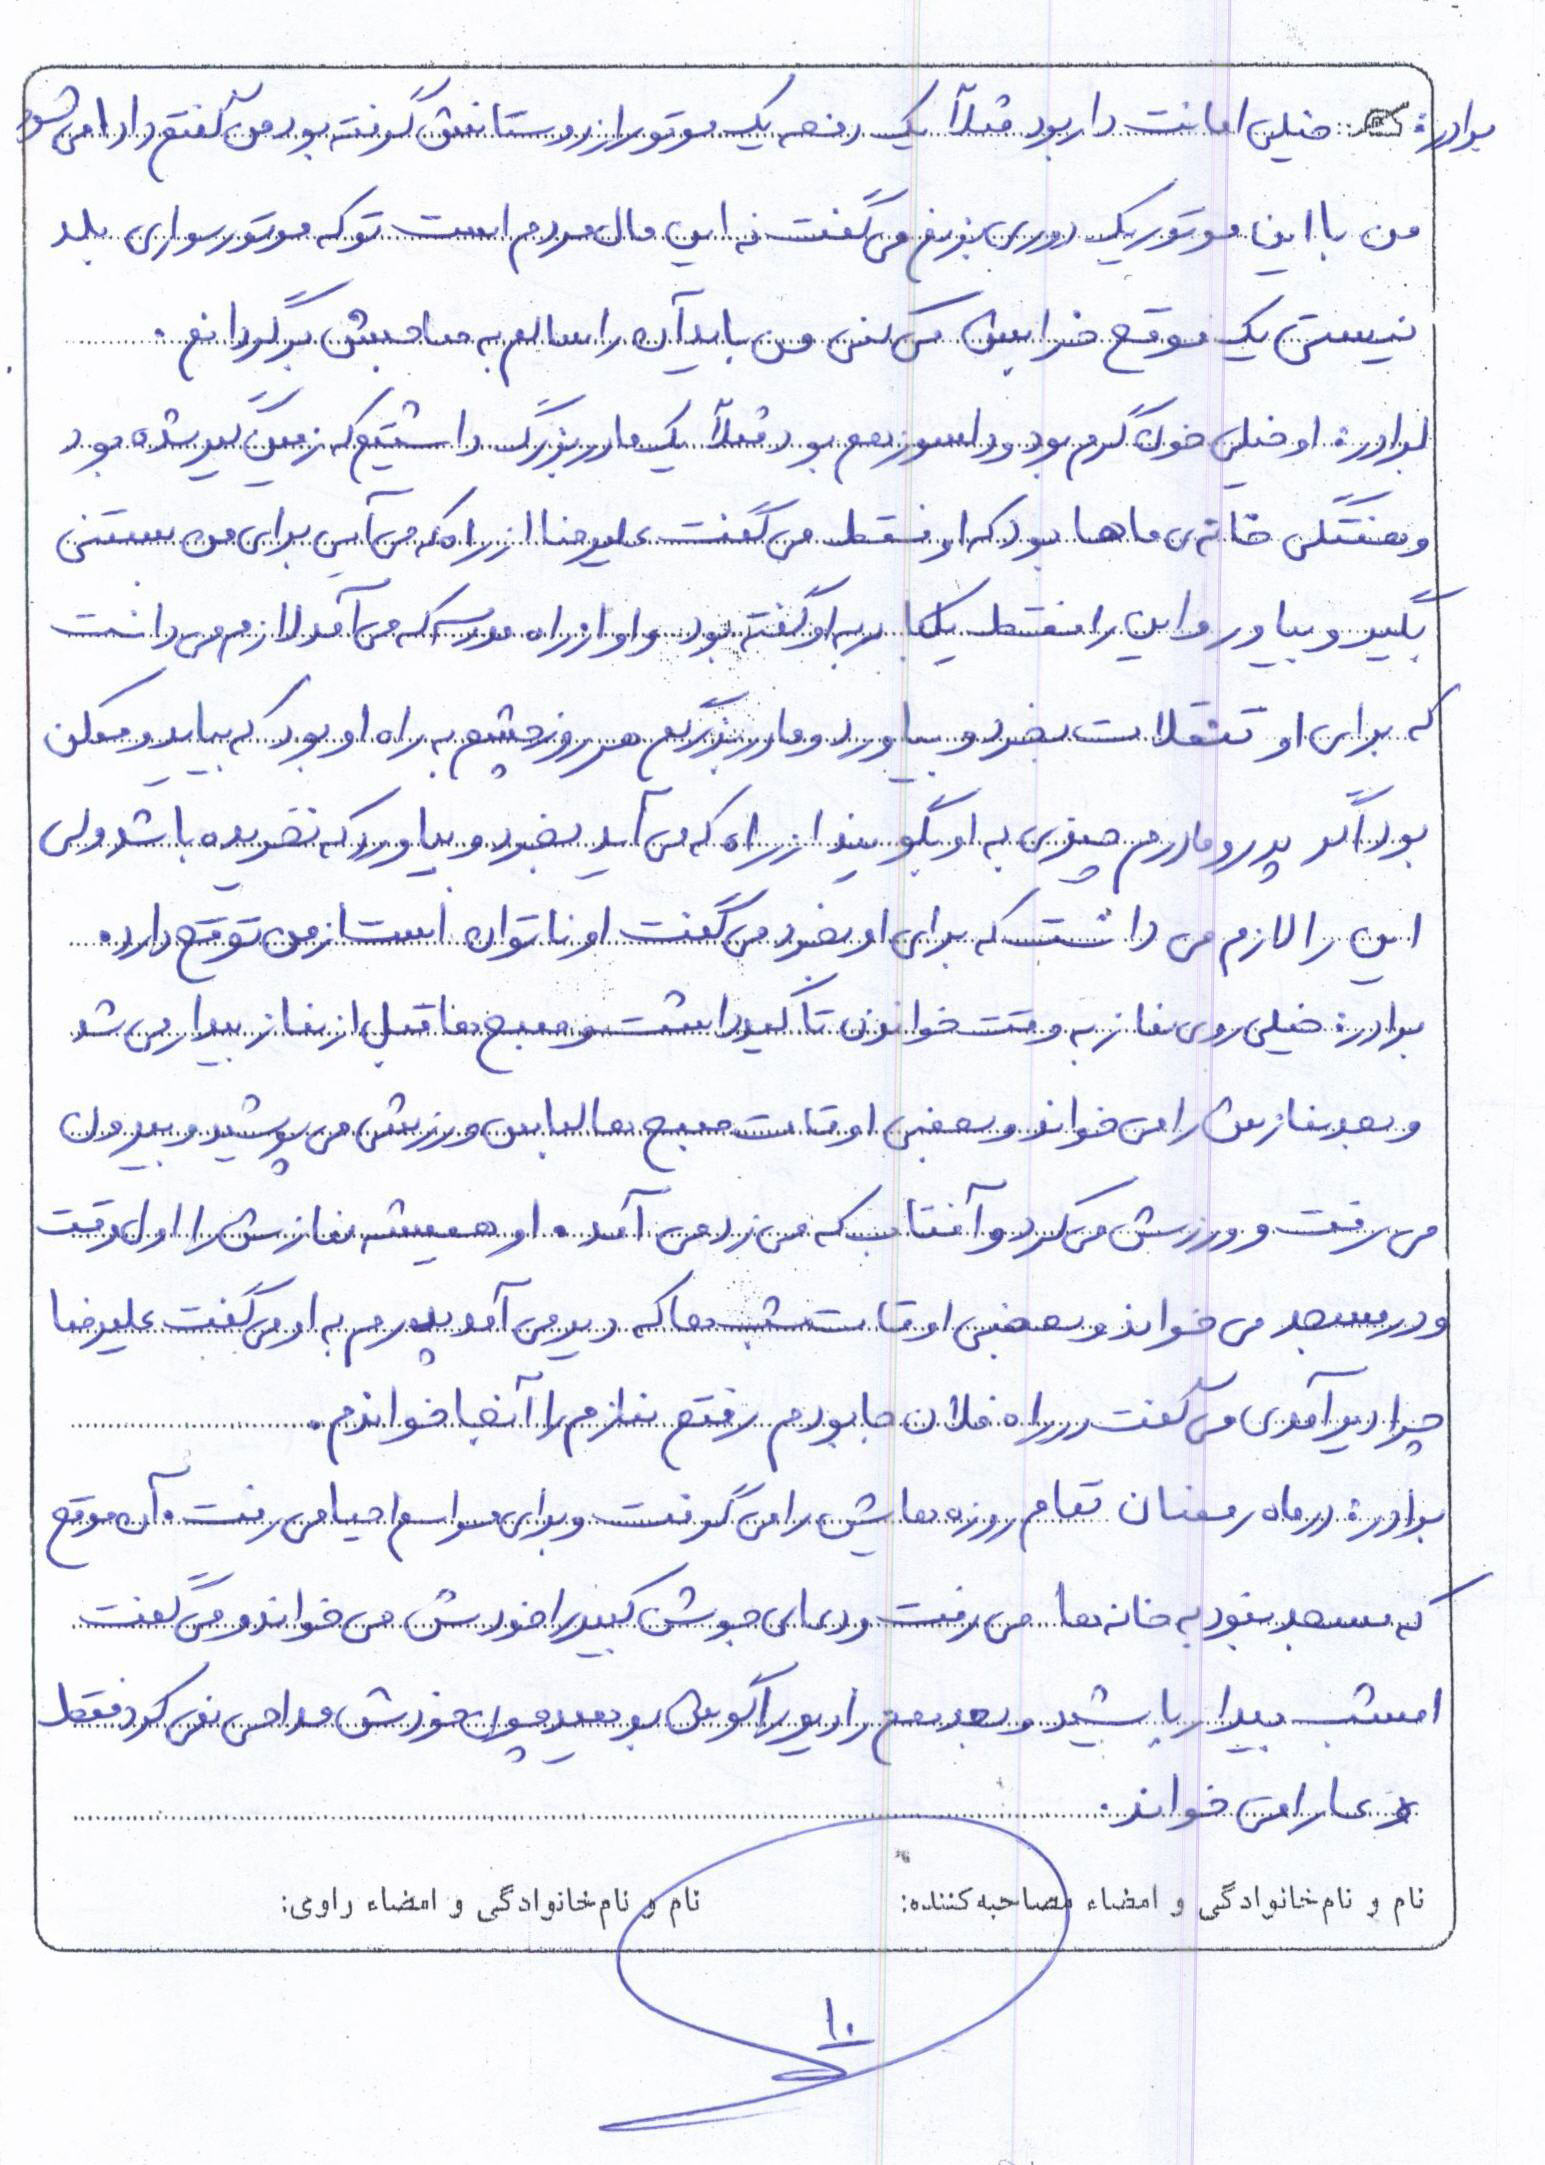 برادرم خیلی امانت دار بود مثلاً یک دفعه یک موتور از دوستانش گرفته بود من گفتم دادا می شود
من با این موتور یک دوری بزنم می گفت نه این مال مردم است تو که موتور سواری بلد
نیستی یک موقع خرابش می کنی من باید آن را سالم به صاحبش برگردانم .
برادرم او خیلی خون گرم بود و دلسوز هم بود مثلاً یک مادربزرگ داشتیم که زمین گیر شده بود
و هفتگی خانه ی ماها بود که او فقط می گفت علیرضا از راه که می آیی برای من بستنی
بگیر و بیاور و این را فقط یکبار به او گفته بود و او از راه مدرسه که می آمد لازم می دانست
که برای او تنقلات بخرد و بیاورد و مادربزرگم هر روز چشم به راه او بود که بیاید و ممکن
بود اگر پدر و مادرم چیزی به او بگویند از راه که می آید بخرد و بیاورد که نخریده باشد ولی
این را لازم می دانست که برای او بخرد می گفت او ناتوان است از من توقع دارد.
برادرم خیلی روی نماز به وقت خواندن تأکید داشت و صبح ها قبل از نماز بیدار می شد
و بعد نمازش را می خواند و بعضی اوقات صبح ها لباس ورزش می پوشید و بیرون
می رفت و ورزش می کرد و آفتاب که می زد می آمد . او همیشه نمازش را اول وقت
و در مسجد می خواند و بعضی اوقات شب ها که دیر می آمد پدرم به او می گفت علیرضا
چرا دیر آمدی می گفت در راه فلان جا بودم رفتم نمازم را آنجا خواندم .
برادرم در ماه رمضان تمام روزه هایش را می گرفت و برای مراسم احیا می رفت و آن موقع
که مسجد نبود به خانه ها می رفت و دعای جوشن کبیر را خودش می خواند و می گفت
امشب بیدار باشید و بعد هم رادیو را گوش بدهید چون خودش مداحی نمی کرد فقط
دعا را می خواند .
نام و نام خانوادگی و امضاء مصاحبه کننده: نام و نام خانوادگی و امضاء راوی:
۱۰